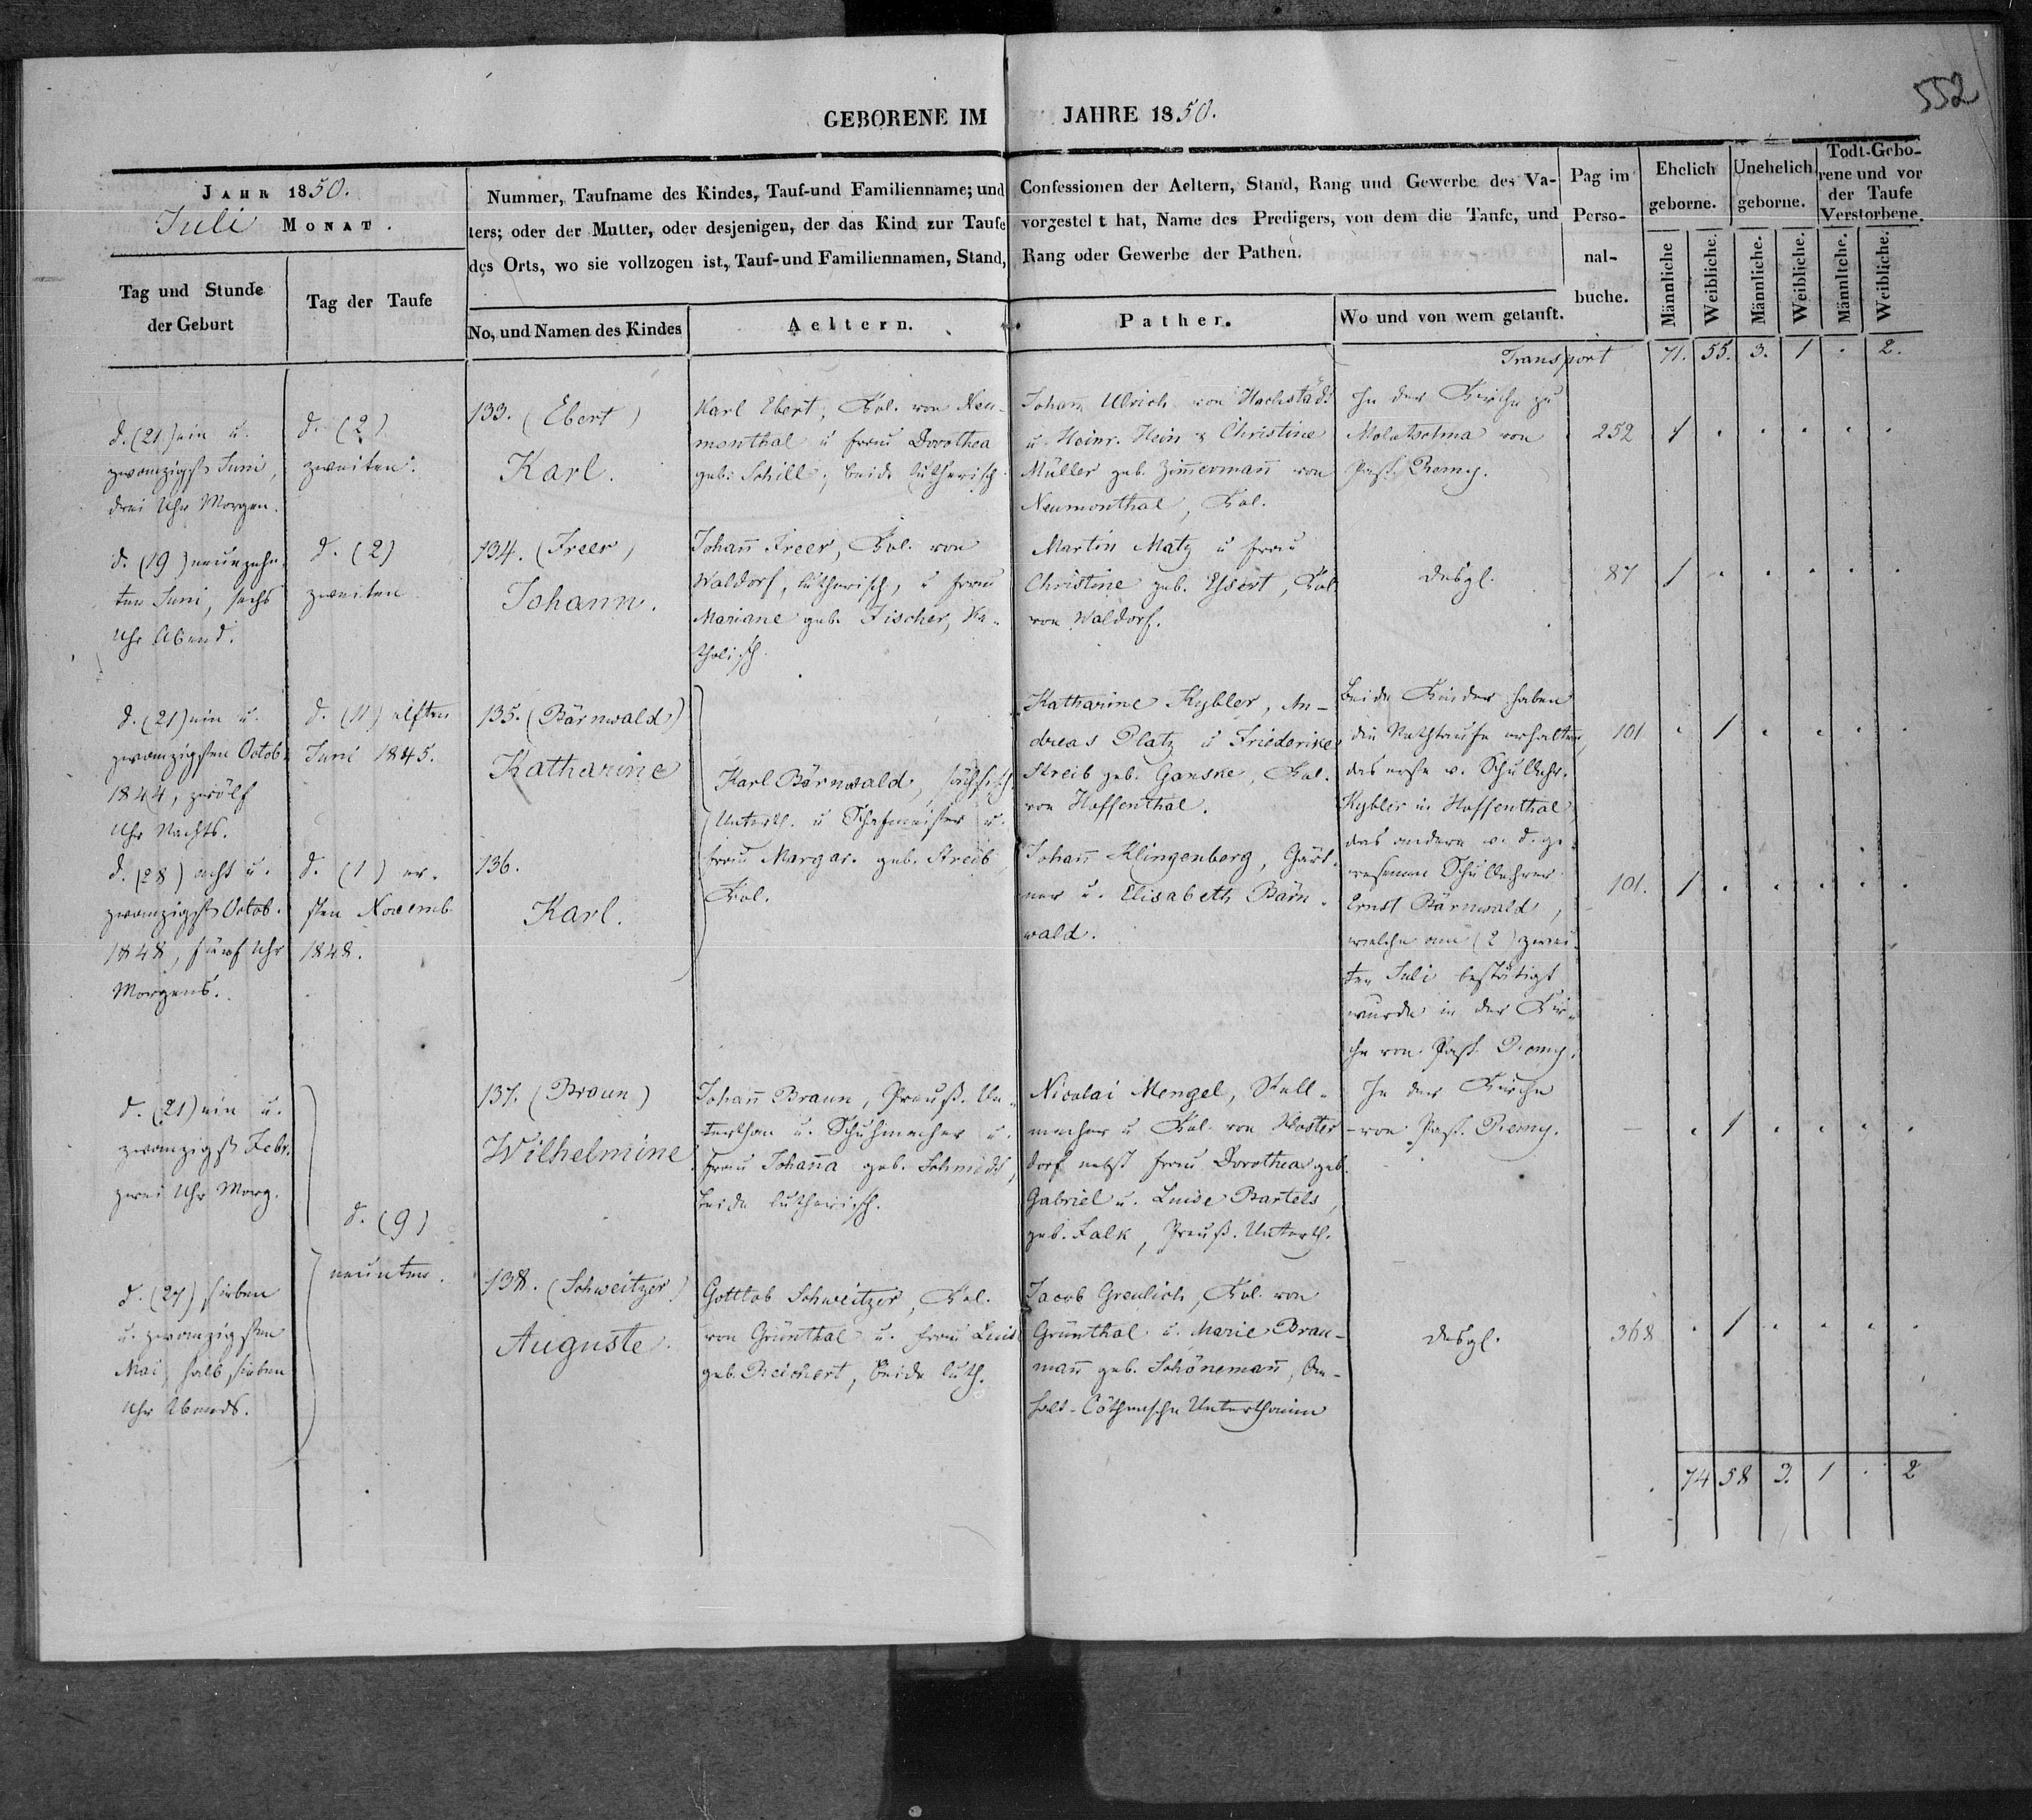 552
GEBORENE IM JAHRE 1850.
JAHR 1850.
Juli MONAT.
Nummer, Taufname des Kindes, Tauf-und Familienname; und Confessionen der Aeltern, Stand, Rang und Gewerbe des Va-
ters; oder der Mutter, oder desjenigen, der das Kind zur Taufe vorgestel t hat, Name des Predigers, von dem die Taufe, und
des Orts, wo sie vollzogen ist, Tauf-und Familiennamen, Stand, Rang oder Gewerbe der Pathen.
Pag im
Perso-
nal-
buche.
Ehelich
geborne.
Unehelich
geborne.
Todt-Gebo-
rene und vor
der Taufe
Verstorbene.
Männliche
Weibliche.
Männliche.
Weibliche.
Männliche.
Weibliche.
Tag und Stunde
der Geburt
Tag der Taufe
No, und Namen des Kindes
Aeltern.
Pather.
Wo und von wem getauft.
Transport 71. 55. 3. 1 . 2.
d. (21) ein u.
zwanzigst Juni,
drei Uhr Morgen.
d. (2)
zweiten.
133. (Ebert)
Karl.
Karl Ebert, Kol. von Neu-
monthal u frau Dorothea
geb. Schill, beide lutherisch.
Johann Ulrich von Hochstädt
u. Heinr. Hein & Christine
Müller geb. Zimermann von
Neumonthal, Kol.
In der Kirche zu
Molotschna von
Past. Romy.
252 1 . . . . .
d. (19) neunzehn-
ten Juni, sechs
Uhr Abend.
d. (2)
zweiten
134. (Freer)
Johann.
Johann Freer, Kol. von
Waldorf, lutherisch, u frau
Mariane geb. Fischer, Ka-
tholisch.
Martin Matz u frau
Christine geb. Essert, Kol.
von Waldorf.
desgl.
87 1 . . . . .
d. (21) ein u.
zwanzigsten Octob.
1844, zwölf
Uhr Nachts.
d. (11) elften
Juni 1845.
135. (Bärnwald)
Katharine
Karl Bärnwald, sächsisch.
Unterth. u Schafmeister u.
frau Margar. geb. Streib
Kol.
Katharine Kybler, An-
dreas Platz u Friederike
Streib geb. Ganske, Kol.
von Hoffenthal.
Beide Kinder haben
die Nothtaufe erhalten,
das erste v. Schullehr.
Kybler in Hoffenthal
das andere v. d. ge-
wesenen Schullehrer
Ernst Bärnwald,
welche am (2) zwei-
ten Juli bestätigt
wurde in der Kir-
che von Past. Romy.
101. . 1 . . . .
d. (28) acht u.
zwanzigst Octob.
1848, fünf Uhr
Morgens.
d. (1) er-
sten Novemb.
1848.
136.
Karl.
Johann Klingenberg, Gärt-
ner u. Elisabeth Bärn-
wald.
101. 1 . . . . .
d. (21) ein u.
zwanzigst Febr.
zwei Uhr Morg.
d. (9)
neunten.
137. (Braun)
Wilhelmine
Johann Braun, Preuß. Un-
terthan u. Schuhmacher u.
frau Johanna geb. Schmidt,
beide lutherisch.
Nicolai Mengel, Stell-
macher u Kol. von Kloster
dorf nebst frau Dorothea geb.
Gabriel u. Luise Bartels,
geb. Falk, Preuß. Unterth.
In der Kirche
von Past. Romy.
— . 1 . . . .
d. (27) sieben
u. zwanzigsten
Mai, halb sieben
Uhr Abends.
138. (Schweitzer)
Auguste.
Gottlob Schweitzer, Kol.
von Grünthal u. frau Luise
geb. Reichert, beide luth.
Jacob Greulich, Kol. von
Grünthal u. Marie Brau-
mann geb. Schönemann, An-
halt-Cöthensche Unterthanin
desgl.
368 . 1 . . . .
74 58 3. 1 . 2